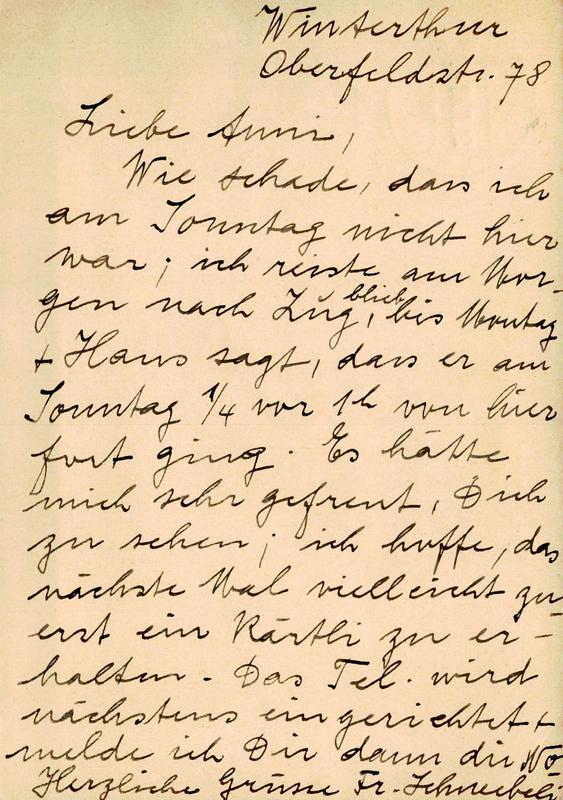 Winterthur
Oberfeldstr. 78
Liebe Anni,
Wie schade, dass ich
am Sonntag nicht hier
war; ich reiste am Mor-
gen nach Zug, blieb bis Montag
+ Hans sagt, dass er am
Sonntag 1/4 vor 1h von hier
fort ging. Es hätte
mich sehr gefreut, Dich
zu sehen; ich hoffe, das
nächste Mal vielleicht zu-
erst ein Kärtli zu er-
halten. Das Tel. wird
nächstens eingerichtet +
melde ich Dir dann die No
Herzliche Grüsse Fr. Schneebeli